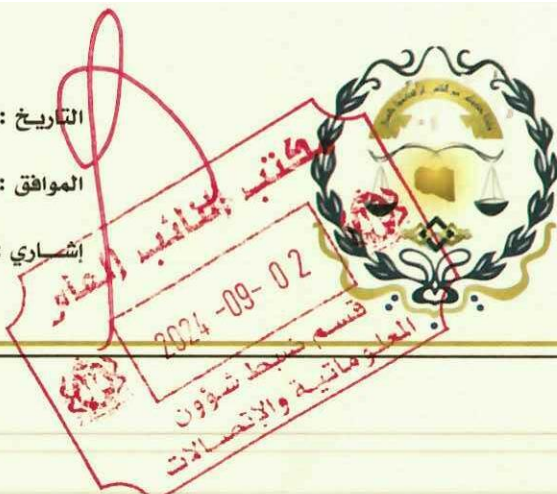 التاريخ :
الموافق :
إشـاري :
مكتب النائب العام
2024-09-02
قسم ضبط شؤون
المعلوماتية والاتصالات